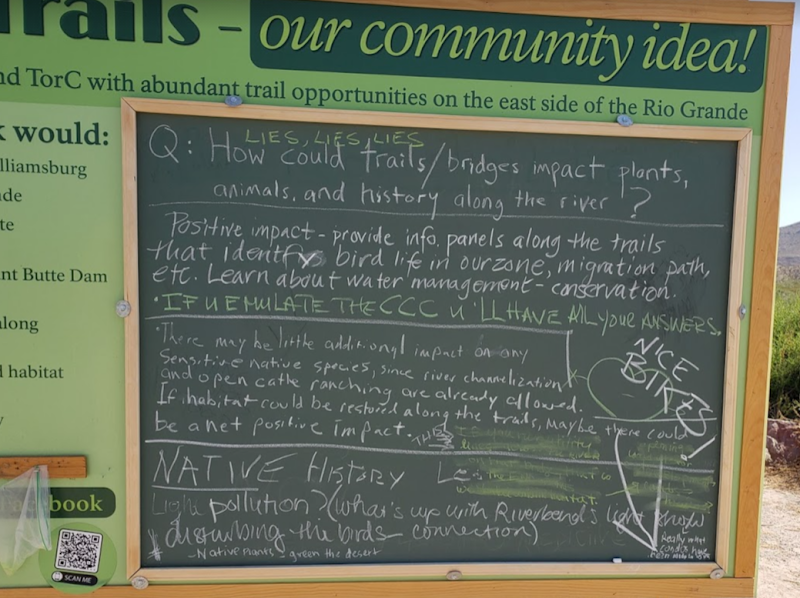 rails – our community idea!
nd TorC with abundant trail opportunities on the east side of the Rio Grande
k would:
lliamsburg
de
te
nt Butte Dam
long
d habitat
y
book
SCAN ME
LIES, LIES, LIES
Q: How could trails/bridges impact plants,
animals, and history along the river ?
Positive impact - provide info. panels along the trails
that identify bird life in our zone, migration path,
etc. Learn about water management - conservation
• IF U EMULATE THE CCC U'LL HAVE All your ANSWERS.
• There may be little additional impact on any
Sensitive native species, since river channelization
and open catle ranching are already allowed.
If habitat could be restored along the trails, maybe there could
be a net positive impact.
THIS
NICE
BIKES!
NATIVE HISTORY
Light pollution? (what's up with Riverbend's light show
disturbing the birds - connection)
- Native Plants green the desert